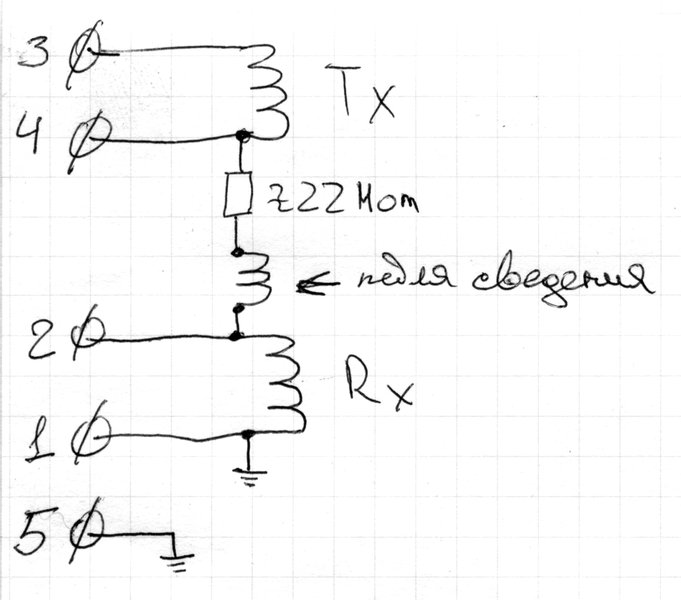 3
Tx
4
222 Mom
← педля сведения
2
Rx
1
5